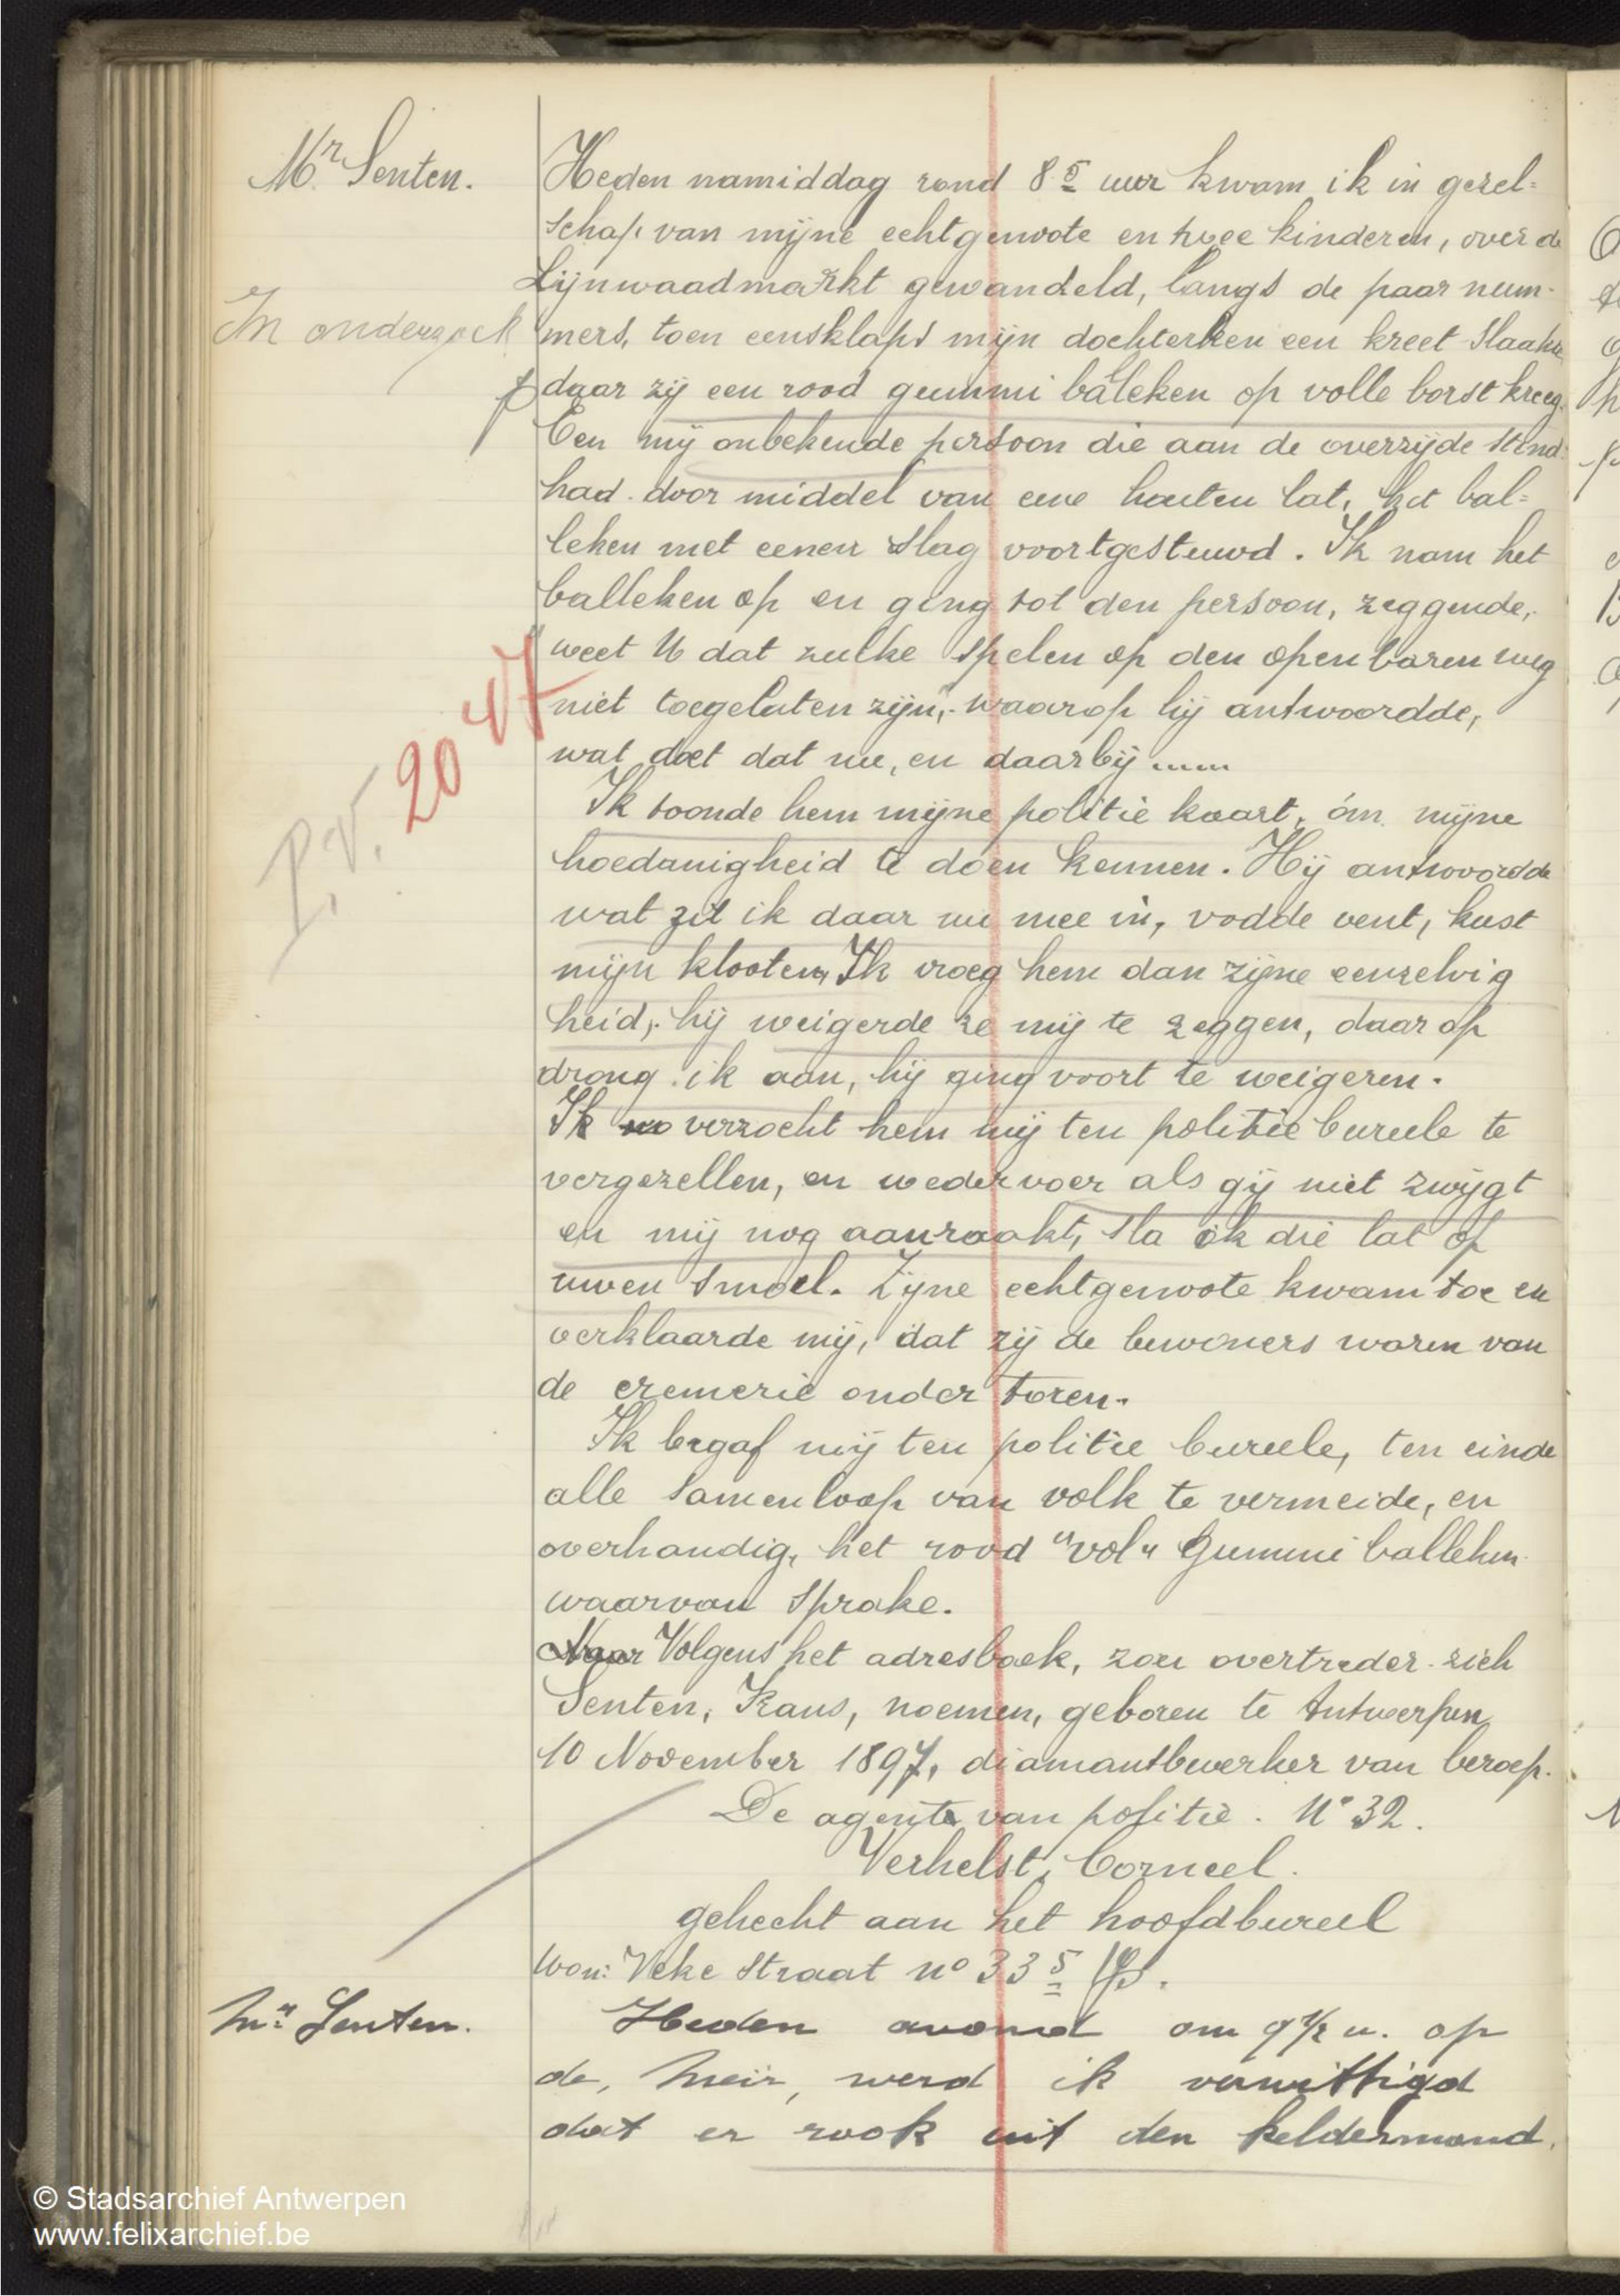 Mr Senten.
Heden namiddag rond 8 5 uur kwam ik in gezel=
schap van mijne echtgenoote en twee kinderen, over de
Lijnwaadmarkt gewandeld, langs de paar num-
In onderzoek
mers, toen eensklaps mijn dochterken een kreet slaakte
daar zij een rood gummi baleken op volle borst kreeg.
Een mij onbekende persoon die aan de overzijde stond
had door middel van eene houten lat, het bal=
leken met eenen slag voortgestuwd. Ik nam het
balleken op en ging tot den persoon, zeggende,
weet U dat zulke spelen op den openbaren weg
niet toegelaten zijn, waarop hij antwoordde,
wat doet dat nu, en daarbij .....
P.V. 2047
Ik toonde hem mijne politie kaart, om mijne
hoedanigheid te doen kennen. Hij antwoordde
wat zit ik daar nu mee in, vodde vent, kust
mijn klooten, Ik vroeg hem dan zijne eenzelvig
heid, hij weigerde ze mij te zeggen, daarop
drong ik aan, hij ging voort te weigeren.
Ik verzocht hem mij ten politie bureele te
vergezellen, en wedervoer als gij niet zwijgt
en mij nog aanraakt, sla ik die lat op
uwen smoel. Zijne echtgenoote kwam toe en
verklaarde mij, dat zij de bewoners waren van
de cremerie onder toren.
Ik begaf mij ten politie bureele, ten einde
alle samenloop van volk te vermeide, en
overhandig, het rood "vol" gummi balleken
waarvan sprake.
Naar Volgens het adresboek, zou overtreder zich
Senten, Frans, noemen, geboren te Antwerpen
10 November 1897, diamantbewerker van beroep.
De agent van politie. No 32.
Verhelst, Corneel.
gehecht aan het hoofdbureel
Won: Veke Straat no 33 5
Mr Senten.
Heden avond om 9 1/2 u. op
de, Meir, werd ik verwittigd
dat er rook uit den keldermond
© Stadsarchief Antwerpen
www.felixarchief.be